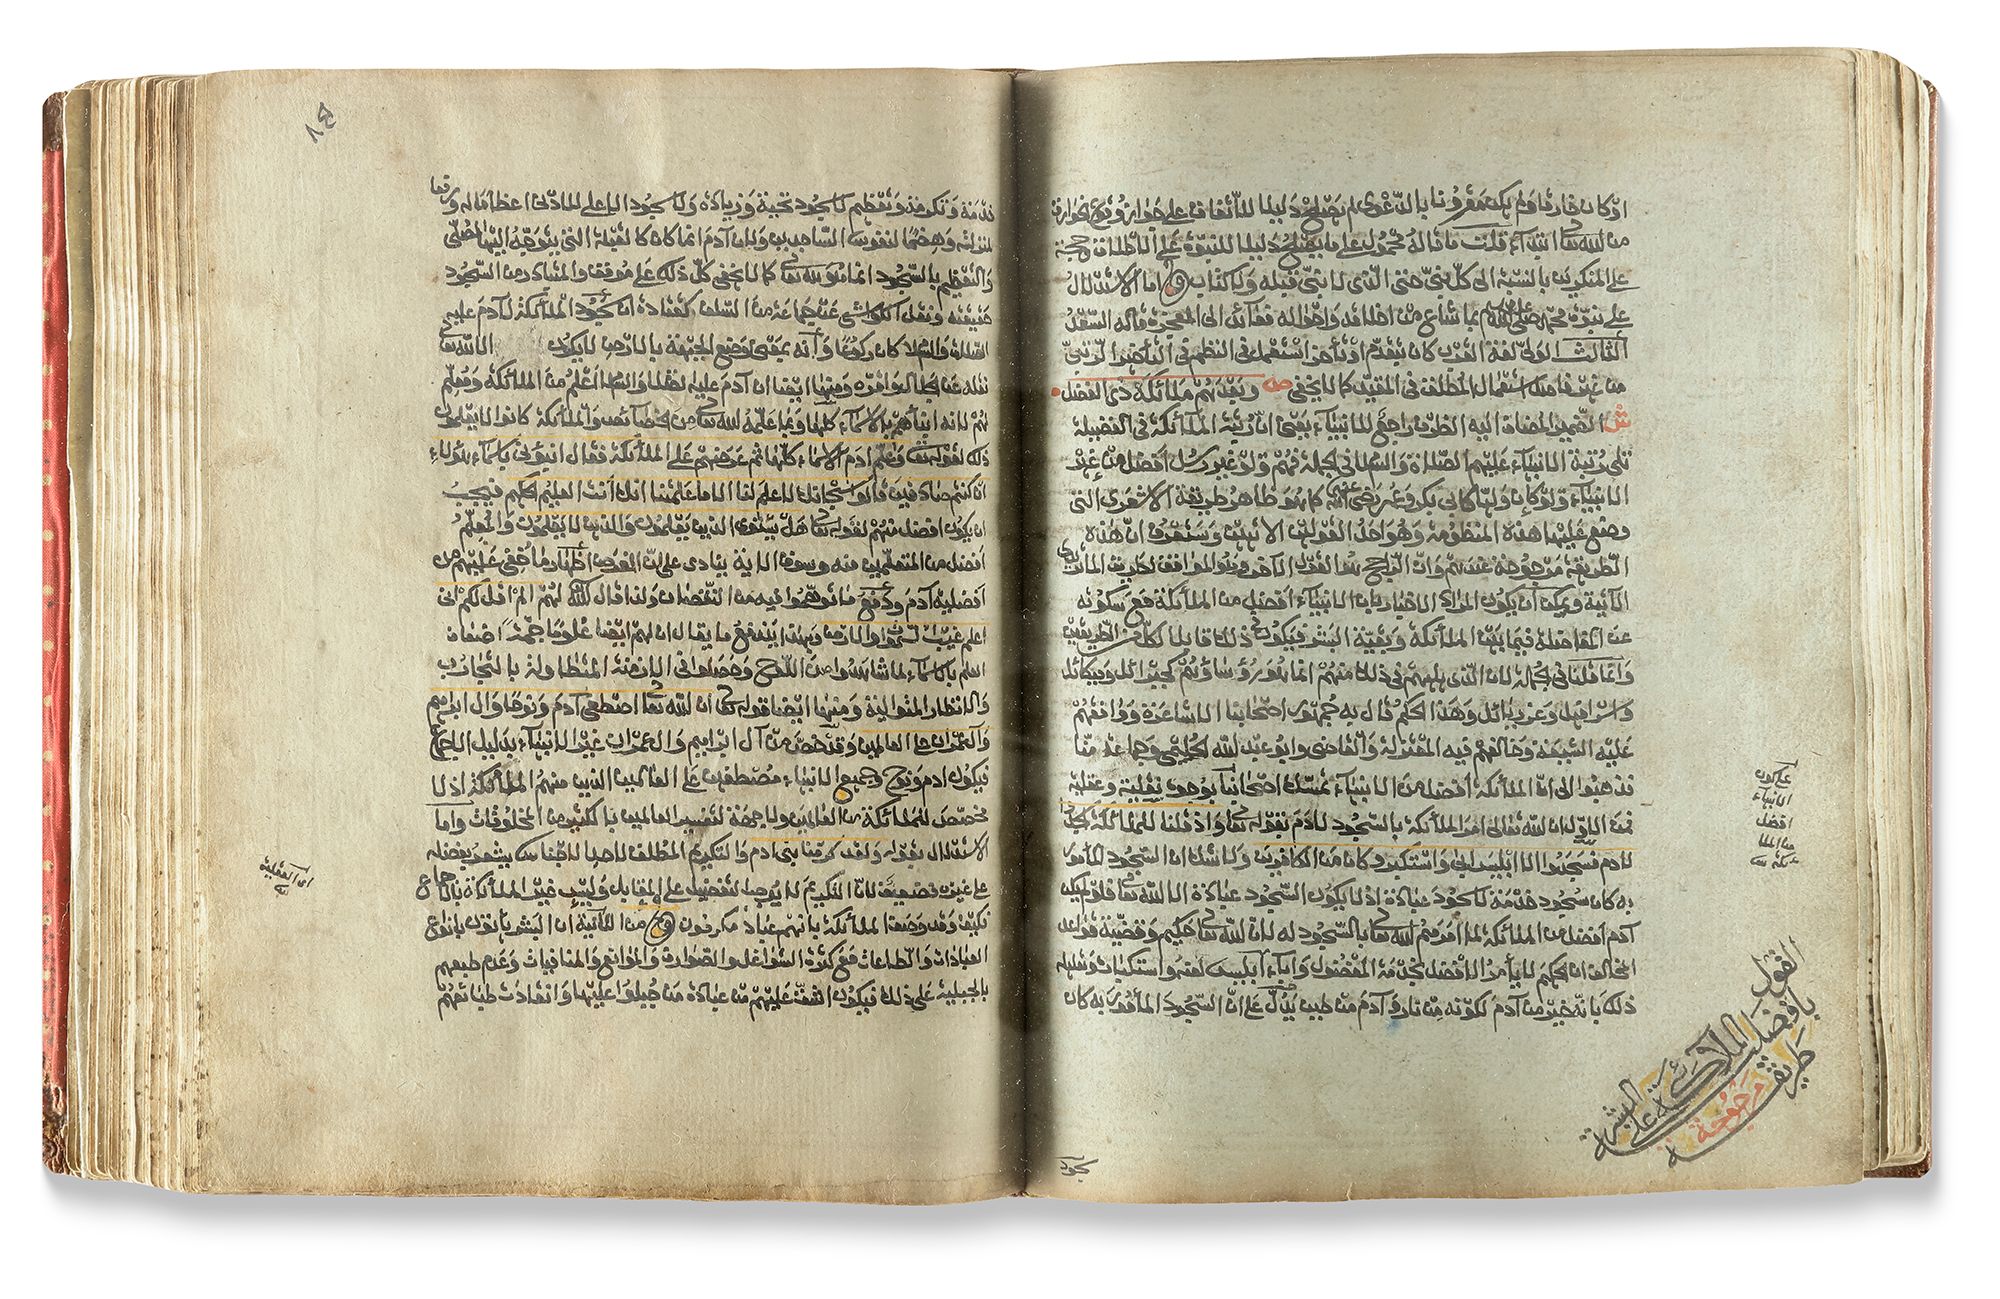 من الله تعالى ابتداء قلت ما قاله محمول على ما يصلح دليلا للنبوة على الاطلاق وحجة
على المنكرين بالنسبة الى كل نبي حتى الذي لا نبي قبله ولا كتاب واما الاستدلال
على نبوة محمد صلى الله عليه وسلم بما شاع من اخلاقه واحواله فعائد الى المعجزة قاله السعد
الثالث
ص وبعدهم ملائكة ذي الفضل
ش الضمير المضاف اليه الظرف راجع للانبياء يعني ان رتبة الملائكة في الفضيلة
تلي رتبة الانبياء عليهم الصلاة والسلام في الجملة فهم ولو غير رسل افضل من غير
الانبياء ولو كان وليا كابي بكر وعمر رضي الله عنهما كما هو ظاهر طريقة الاشعري التي
وضع عليها هذه المنظومة وهو احد القولين الاتيين وستعرف ان هذه
الطريقة مرجوحة عندهم وان الراجح هذا القول الاخر وهو الموافق لطريق الماتريدي
الآتية ويمكن ان يكون المراد الاخبار بان الانبياء افضل من الملائكة مع سكوته
عن المفاضلة فيما بين الملائكة وبقية البشر فيكون ذلك قابلا لكل من الطريقين
وانما قلنا في الجملة لان الذي يليهم في ذلك منهم انما هو رؤساؤهم كجبرائل وميكائل
واسرافيل وعزرائل وهذا الحكم قال به جمهور اصحابنا الاشاعرة ووافقهم
عليه الشيعة وخالفهم فيه المعتزلة والقاضي وابو عبد الله الحليمي وجماعة منا
فذهبوا الى ان الملائكة افضل من الانبياء تمسك اصحابنا بوجوه نقلية وعقلية
فمن الاول ان الله تعالى امر الملائكة بالسجود لادم بقوله تعالى واذ قلنا للملائكة اسجدوا
لادم فسجدوا الا ابليس ابى واستكبر وكان من الكافرين ولا شك ان السجود المأمور
به كان سجود خدمة لا سجود عبادة اذ لا يكون السجود عبادة الا لله تعالى فلو لم يكن
آدم افضل من الملائكة لما امرهم الله تعالى بالسجود له لان الله تعالى حكيم وقضية قواعد
المخالف ان الحكيم لا يأمر الافضل بخدمة المفضول وإباء ابليس لعنه واستكباره وتعليله
ذلك بانه خير من آدم لكونه من نار وآدم من طين يدل على ان السجود المأمور به كان
على كون
الانبياء
افضل
من الملا
ئكة
القول
بافضلية الملائكة على البشر
طريقة مرجوحة
سجود
خدمة وتكرمة وتعظيم لا سجود تحية وزيارة ولا سجود الاعلى للادنى اعظاما له ورفعا
لمنزلته وهضما لنفوس الساجدين ولان آدم انما كان كالقبلة التي يتوجه اليها المصلي
والتعظيم بالسجود انما هو لله تعالى كما لا يخفى كل ذلك على موقف والمتبادر من السجود
حقيقته ونقل الكواشي عن جماعة من السلف كقتادة ان سجود الملائكة لآدم عليه
الصلاة والسلام كان ركوعا وأنه بمعنى وضع الجبهة بالارض لا يكون الا لله تعالى
نقله عن الجلال وغيره ومنها ايضا ان آدم عليه الصلاة والسلام اعلم من الملائكة ومعلم
لهم لانه انبأهم بالاسماء كلها وبما علمه الله تعالى من الخصائص والملائكة كانوا لا يعلمون
ذلك لقوله تعالى وعلم ادم الاسماء كلها ثم عرضهم على الملائكة فقال انبؤني باسماء هؤلاء
ان كنتم صادقين قالوا سبحانك لا علم لنا الا ما علمتنا انك أنت العليم الحكيم فيجب
ان يكون افضل منهم لقوله تعالى هل يستوي الذين يعلمون والذين لا يعلمون والمعلم
افضل من المتعلمين منه وسوق الاية ينادي على ان الغرض اظهار ما خفي عليهم من
افضلية آدم ودفع ما توهموا فيه من النقصان ولذا قال الله لهم الم اقل لكم اني
اعلم غيب السموات والارض وبهذا يندفع ما يقال ان لهم ايضا علوما جمة اضعاف
العلم بالاسماء لما شاهدوا من اللوح وحصلوا في الازمنة المتطاولة بالتجارب
والانظار المتوالية ومنها ايضا قوله تعالى ان الله تعالى اصطفى آدم ونوحا وال ابراهيم
وآل عمران على العالمين وقد خص من آل ابراهيم وال عمران غير الانبياء بدليل الاجماع
فيكون ادم ونوح وجميع الانبياء مصطفين على العالمين الذين منهم الملائكة اذ لا
مخصص للملائكة من العالمين ولا جهة لتفسير العالمين بالكثير من المخلوقات واما
الاستدلال بقوله ولقد كرمنا بني ادم والتكريم المطلق لاحد الاجناس يشعر بفضله
على غيره فضعيف لان التكريم لا يوجب التفضيل على المقابل وليس غير الملائكة بالاجماع
كيف وقد وصف الملائكة بانهم عباد مكرمون ومن الثانية ان البشر يأتون بانواع
العبادات والطاعات مع كثرة الشواغل والصوارف والموانع والمنافيات وعدم طبعهم
بالجبلية على ذلك فيكون اشق عليهم من عبادة من جبلوا عليها وانقادت طباعهم
اي العقلية